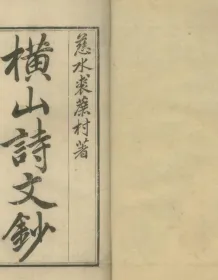 慈水裘蔗村著
橫山詩文鈔